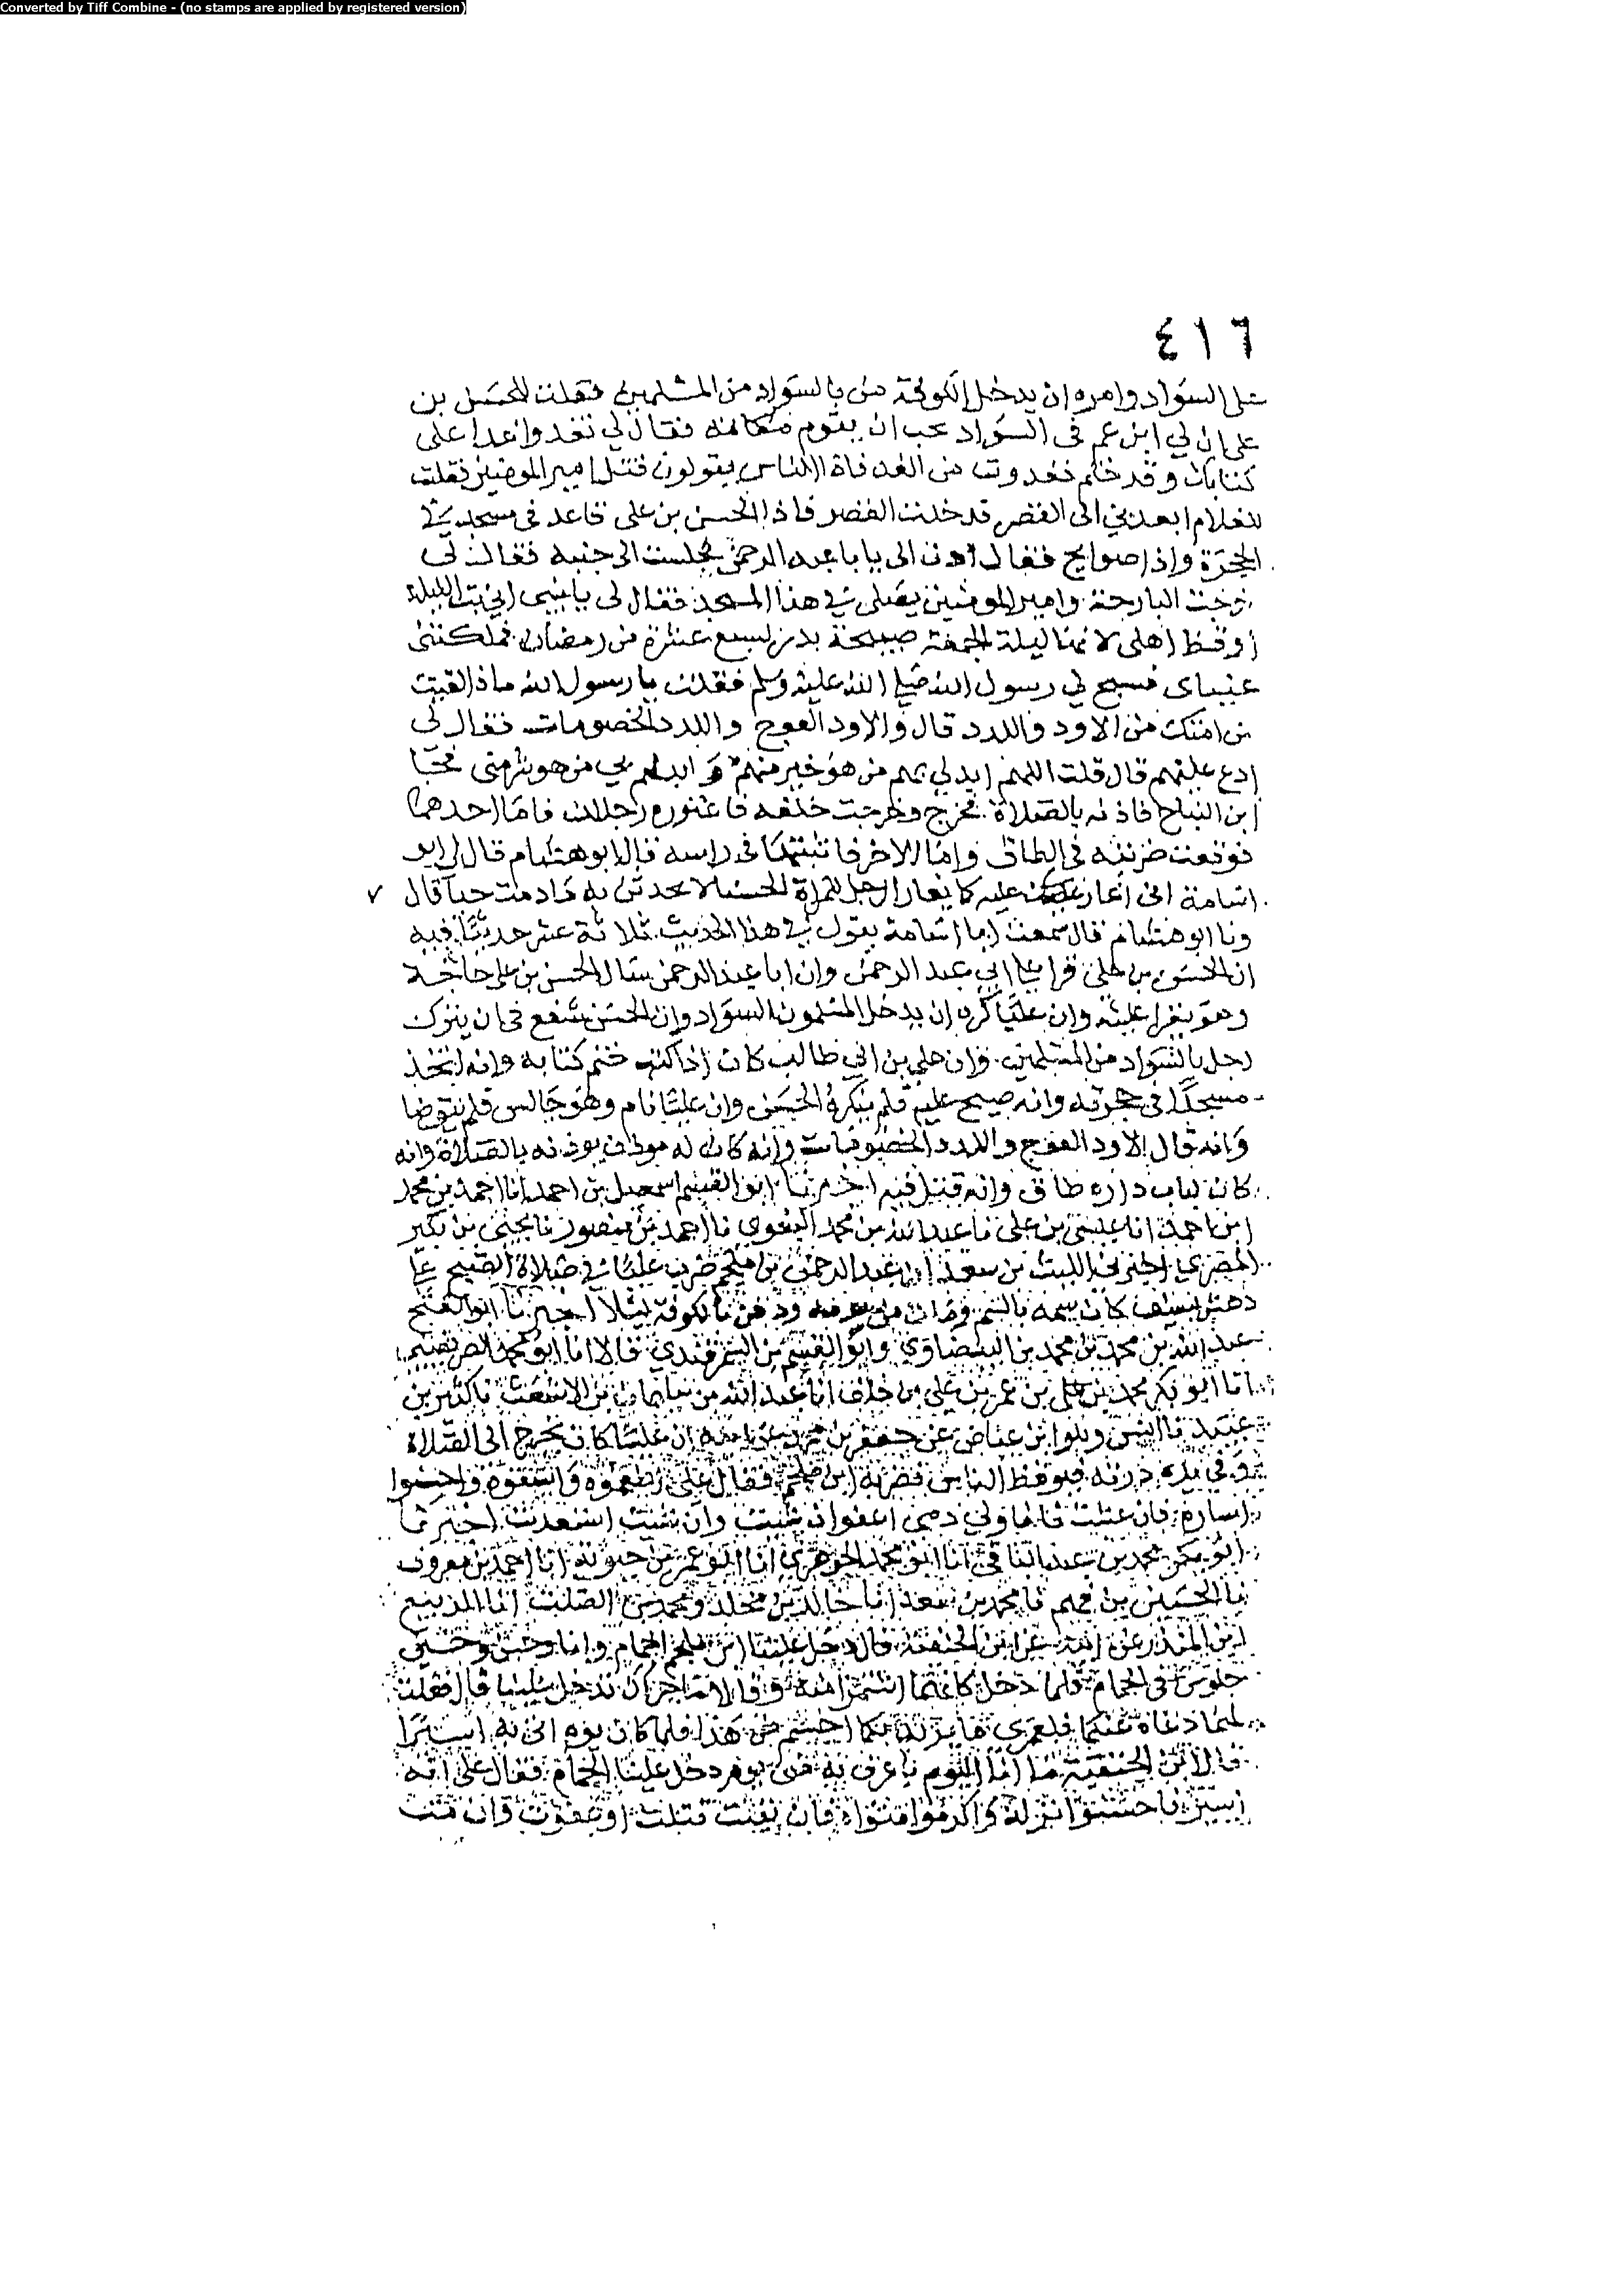 Converted by Tiff Combine - (no stamps are applied by registered version)
٤١٦
على السواد وامره ان يدخل الكوفة من بالسواد من المسلمين فقلت للحسن بن
على ان لي ابن عم فى السواد يحب ان يقوم مكانه فقال لي تغدوا غدا على
كتابك وقد ختم فغدوت من الغد فاذا الناس يقولون قتل امير المومنين فقلت
للغلام ابعدني الى القصر فدخلت القصر فاذا الحسن بن على قاعد فى مسجد في
الحجرة واذا صوايح فقال ادن الى يا با عبد الرحمن فجلست الى جنبه فقال لى
خرجت البارحة وامير المومنين يصلى في هذا المسجد فقال لى يا بنيى اني بت الليلة
اوقظ اهلى لانها ليلة الجمعة صبيحة بدر لسبع عشرة من رمضان فملكتنى
عيناى فسبح لي رسول الله صلى الله عليه وسلم فقلت يا رسول الله ماذا لقيت
من امتك من الاود واللدد قال والاود العوج واللدد الخصومات فقال لى
ادع عليهم قال قلت اللهم ابدلي بهم من هو خير منهم وابدلهم بي من هو شر منى فجا
ابن النباح فاذنه بالصلاة فخرج وخرجت خلفه فاعتوره رجلان فاما احدهما
فوقعت ضربته فى الطاق واما الاخر فاثبتها فى راسه قال ابو هشام قال لي ابو
اسامة انى اغار عليه كما يغار الرجل للمراة الحسنا لا تحدثن به ما دمت حيا قال
ونا ابو هشام قال سمعت ابا اسامة يقول في هذا الحديث ثلاثة عشر حديثا فيه
ان الحسن بن على قرا على ابي عبد الرحمن وان ابا عبد الرحمن سال الحسن بن على حاجة
وهو يقرا عليه وان عليا كره ان يدخل المسلمون السواد وان الحسن شفع فى ان يترك
رجل بالسواد من المسلمين وان على بن ابي طالب كان اذا كتب ختم كتابه وانه اتخذ
مسجدا فى حجرته وانه صيح عليه فلم ينكره الحسن وان عليا نام وهو جالس فلم يتوضا
وانه قال الاود العوج واللدد الخصومات وانه كان له موذن يوذنه بالصلاة وانه
كان لباب داره طاق وانه قتيل فيه اخبرنا ابو القسم اسمعيل بن احمد انا احمد بن محمد
ابن احمد انا عيسى بن على نا عبد الله بن محمد البغوي نا احمد بن منصور نا يحيى بن بكير
المصري اخبرنى الليث بن سعد ان عبد الرحمن بن ملجم ضرب عليا في صلاة الصبح على
دهش بسيف كان سمه بالسم ومات من يومه ودفن بالكوفة ليلا اخبرنا ابو الفتح
عبد الله بن محمد بن محمد بن البيضاوي وابو القسم بن السمرقندي قالا انا ابو محمد الصريفيني
انا ابو بكر محمد بن على بن عمر بن علي بن خلف انا عبد الله بن سليمان بن الاشعث نا كثير بن
عبيد نا انس وهو ابن عياض عن جعفر بن محمد عن ابيه ان عليا كان يخرج الى الصلاة
وفي يده درته فيوقظ الناس فضربه ابن ملجم فقال على اطعموه واسقوه واحسنوا
اساره فان عشت فانا ولي دمى اعفوا ان شيت وان شيت استقدت اخبرنا
ابو بكر محمد بن عبد الباقى انا ابو محمد الجوهري انا ابو عمر بن حيويه انا احمد بن معروف
نا الحسين بن فهم نا محمد بن سعد انا خالد بن مخلد ومحمد بن الصلت انا الربيع
ابن المنذر عن ابيه عن ابن الحنفية قال دخل علينا ابن ملجم الحمام وانا وحسن وحسين
جلوس فى الحمام فلما دخل كانهما اشمازا منه وقالا ما اجراك تدخل علينا قال فقلت
لهما دعاه عنكما فلعمرى ما يريد بكما احشم من هذا فلما كان يوم اتى به اسيرا
قال ابن الحنفية ما انا اليوم باعرف به من يوم دخل علينا الحمام فقال على انه
اسير فاحسنوا نزله واكرموا مثواه فان بقيت قتلت او عفوت وان مت